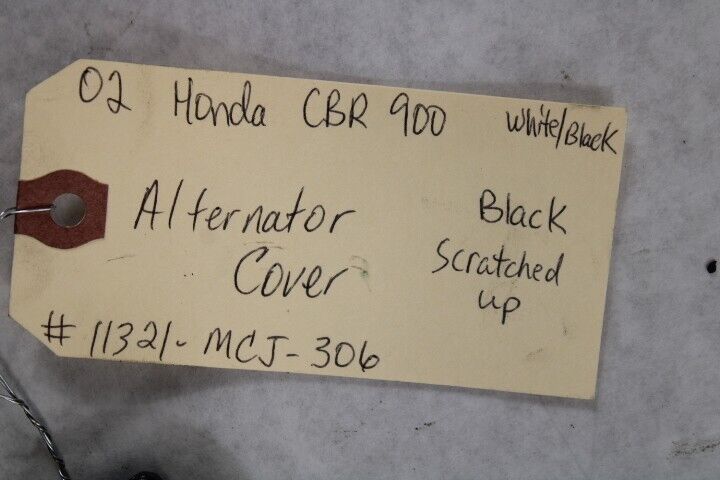 02 Honda CBR 900 White/Black
Alternator Cover
Black scratched up
# 11321-MCJ-306